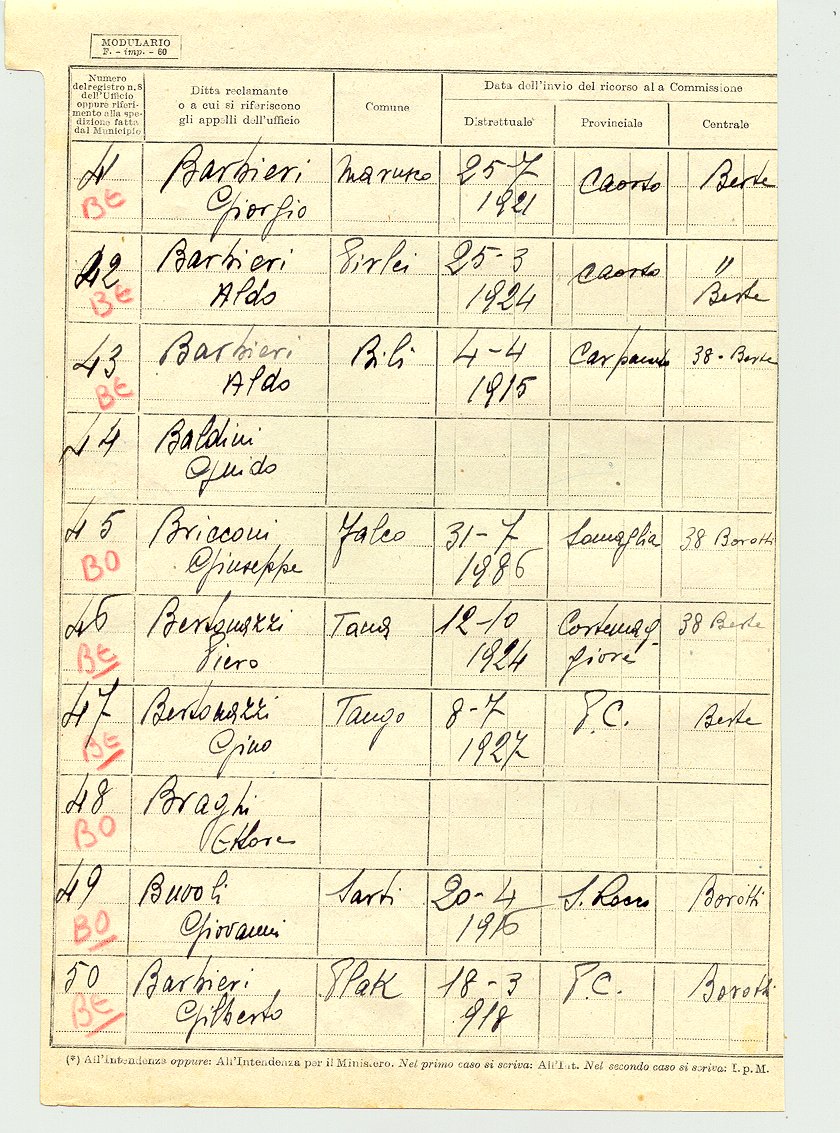 MODULARIO
F. - imp. - 60
Numero del registro n. 8 dell'Ufficio oppure riferimento alla spedizione fatta dal Municipio
Ditta reclamante o a cui si riferiscono gli appelli dell'ufficio
Comune
Data dell'invio del ricorso al a Commissione
Distrettuale
Provinciale
Centrale
41 Barbieri 25-7 Caorso Berte
BE Giorgio 1921
42 Barbieri 25-3 Caorso "
BE Aldo 1924 Berte
43 Barbieri Bili 4-4 38 - Berte
BE Aldo 1915
44 Baldini
Guido
45 Bricconi Falco 31-7 Somaglia 38 Borotti
BO Giuseppe 1986
46 Bertonazzi Tana 12-10 Cortemag- 38 Berte
BE Piero 1924 giore
47 Bertonazzi Tango 8-7 P.C. Berte
BE Gino 1927
48 Braghi
BO Ettore
49 Buvoli Sarti 20-4 S. Rocco Borotti
BO Giovanni 1916
50 Barbieri Plak 18-3 P.C. Borotti
BE Gilberto 918
(*) All'Intendenza oppure: All'Intendenza per il Ministero. Nel primo caso si scriva: All'Int. Nel secondo caso si scriva: I. p. M.